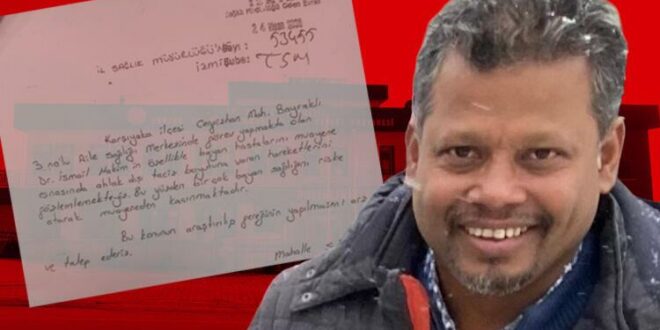 Gelen Evrak
53455
İL SAĞLIK MÜDÜRLÜĞÜ'NE
İzmir Şube: TSM
Karşıyaka ilçesi Cengizhan Mah. Bayraklı
3 no'lu Aile Sağlığı Merkezinde görev yapmakta olan
Dr. İsmail Hakim'in özellikle bayan hastalarını muayene
esnasında ahlak dışı taciz boyutuna varan hareketlerini
gözlemlemekteyiz. Bu yüzden bir çok bayan sağlığını riske
atarak muayeneden kaçınmaktadır.
Bu konunun araştırılıp gereğinin yapılmasını arz
ve talep ederiz.
Mahalle